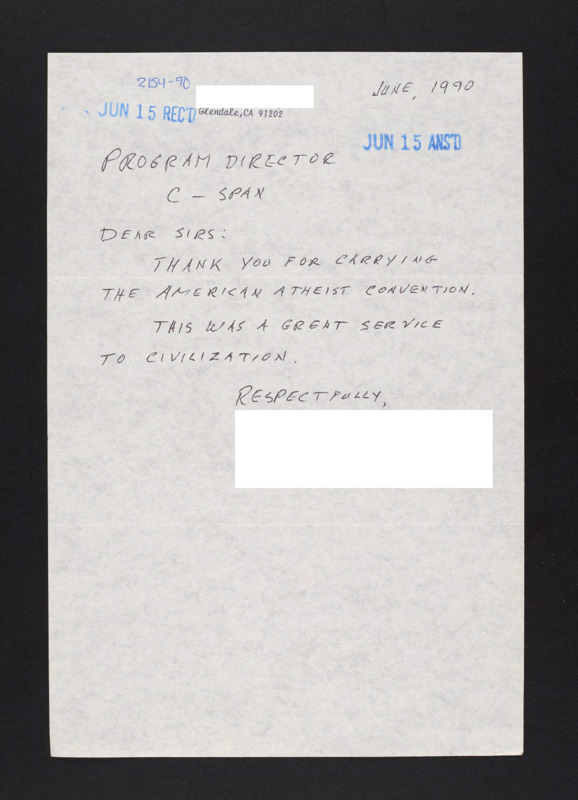 2154-90
JUNE, 1990
JUN 15 REC'D
Glendale, CA 91202
JUN 15 ANS'D
PROGRAM DIRECTOR
C - SPAN
DEAR SIRS:
THANK YOU FOR CARRYING
THE AMERICAN ATHEIST CONVENTION.
THIS WAS A GREAT SERVICE
TO CIVILIZATION.
RESPECTFULLY,